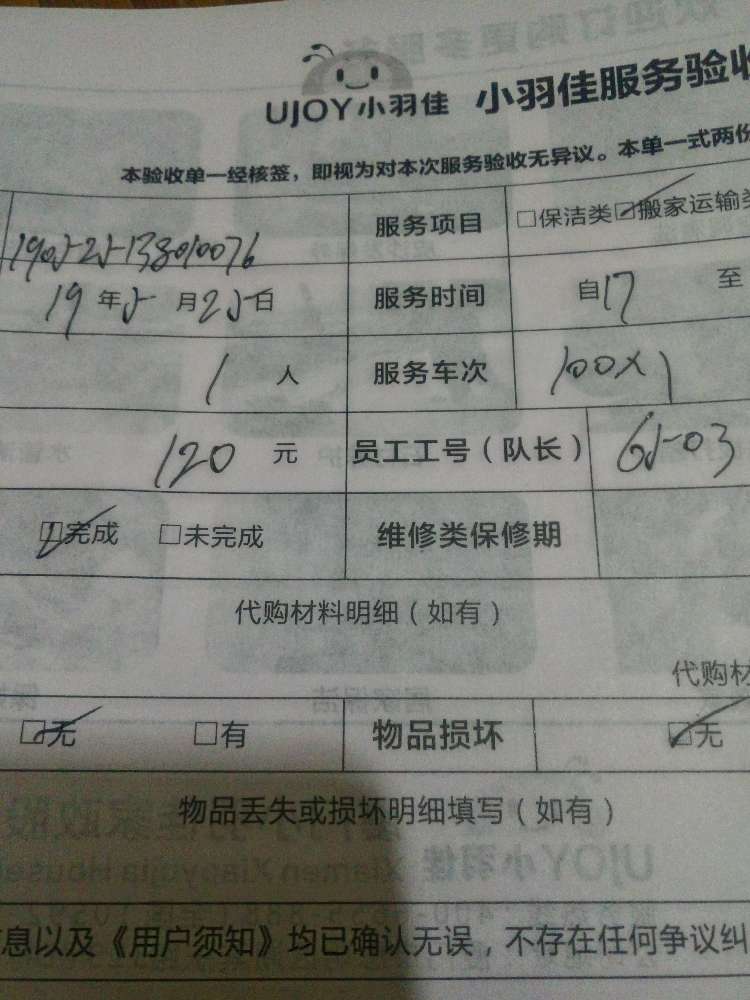 UJOY小羽佳 小羽佳服务验收
本验收单一经核签，即视为对本次服务验收无异议。本单一式两份
1905-25-138010076 服务项目 □保洁类 ☑搬家运输类
19年5月25日 服务时间 自17 至
1人 服务车次 100×1
120元 员工工号（队长） 65-03
☑完成 □未完成 维修类保修期
代购材料明细（如有）
代购材
☑无 □有 物品损坏 ☑无
物品丢失或损坏明细填写（如有）
信息以及《用户须知》均已确认无误，不存在任何争议纠